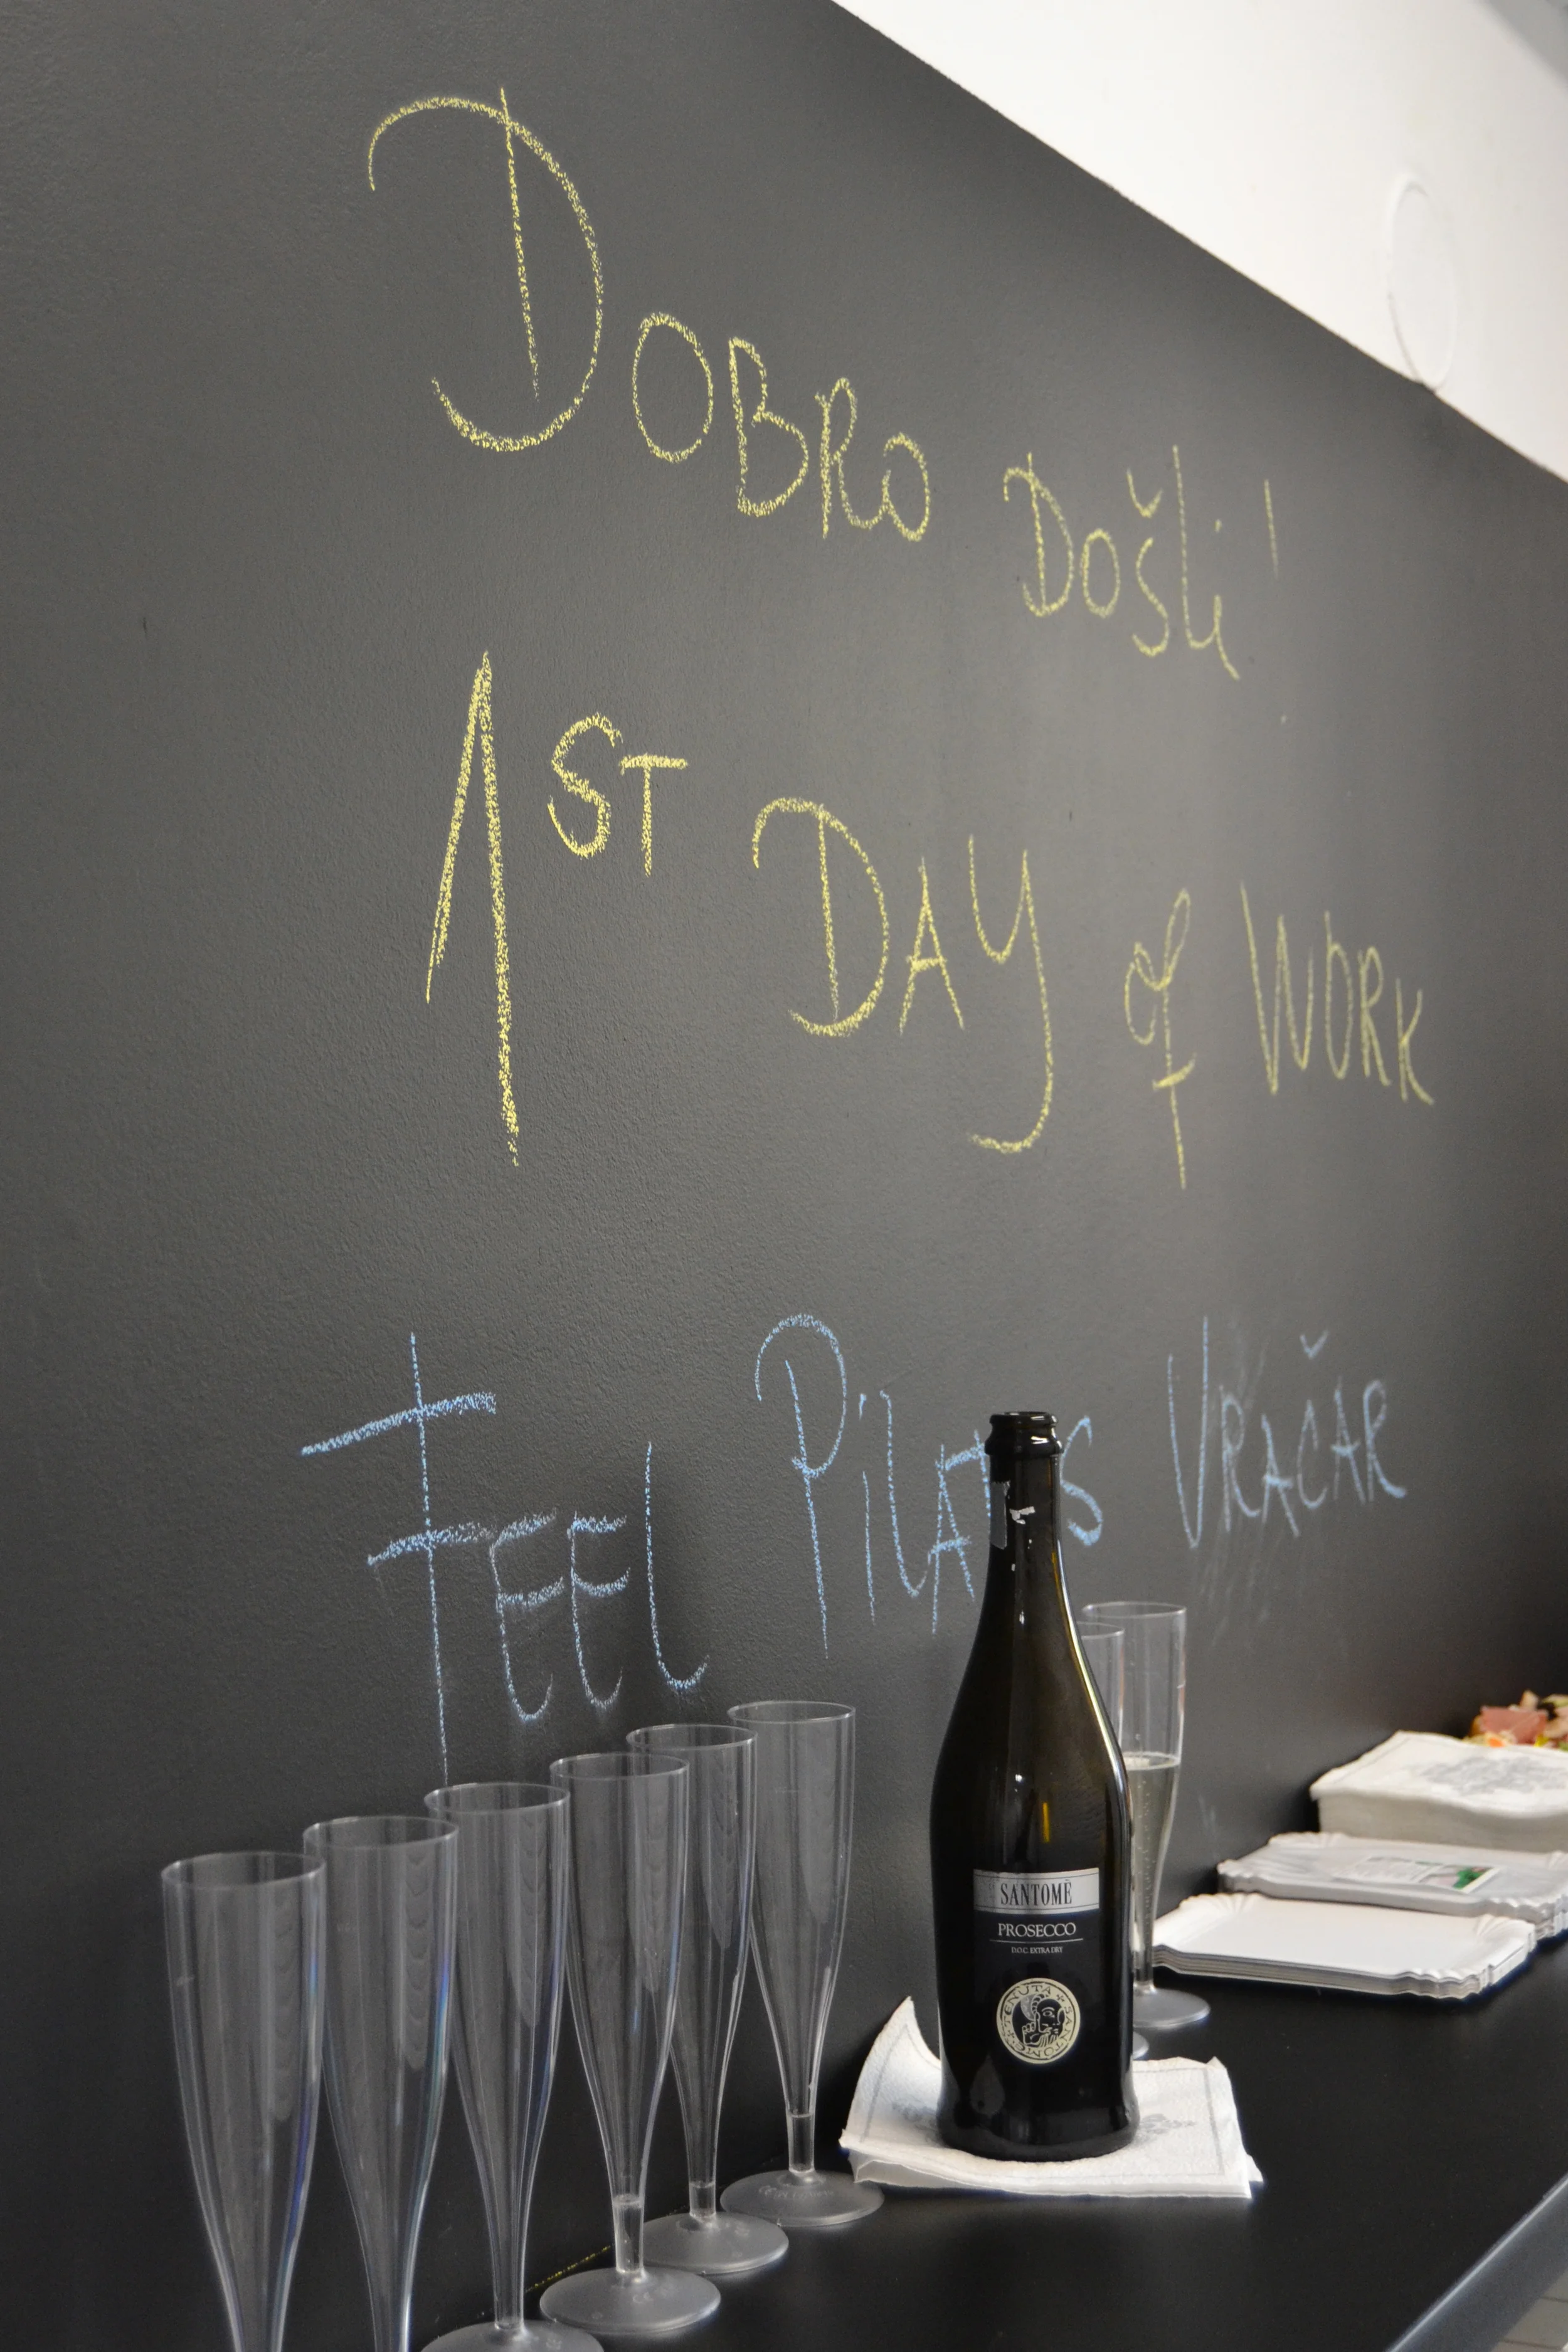 DOBRO DOŠLi!
1ST DAY of WORK
FEEL PiLATES VRAČAR
SANTOMÈ
PROSECCO
D.O.C. EXTRA DRY
TENUTA SANTOMÈ